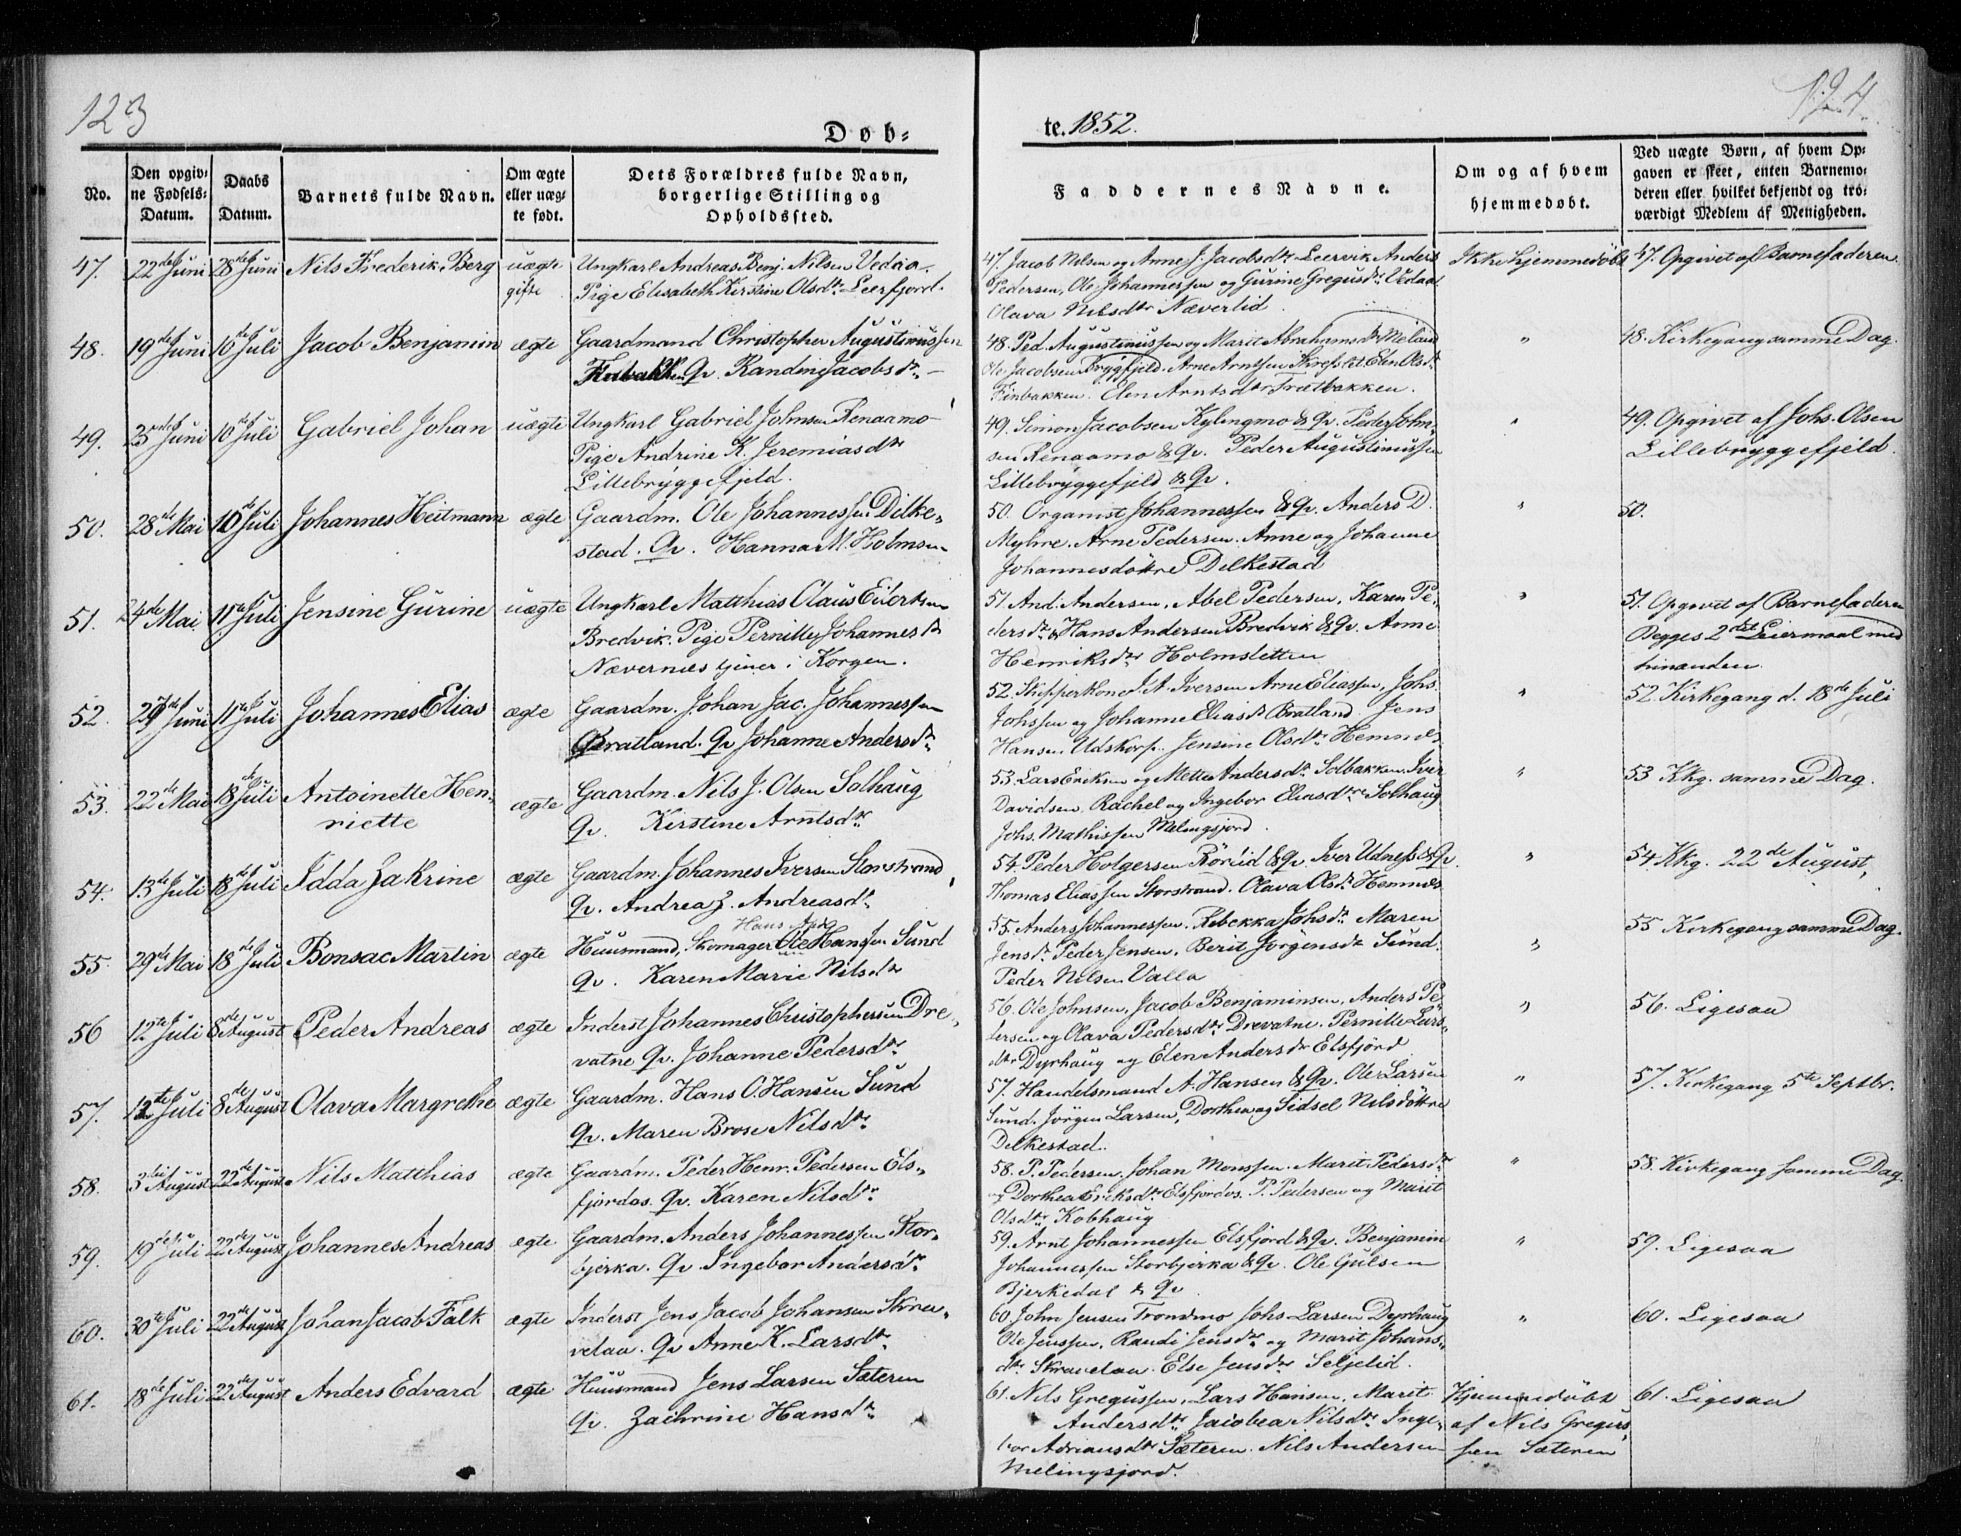 123
124
Døb=
te. 1852.
No.
Den opgiv=
ne Fødsels=
Datum.
Daabs
Datum.
Barnets fulde Navn.
Om ægte
eller uæg=
te født.
Dets Forældres fulde Navn,
borgerlige Stilling og
Opholdssted.
Faddernes Navne.
Om og af hvem
hjemmedøbt.
Ved uægte Børn, af hvem Op=
gaven er skeet, enten Barnemo=
deren eller hvilket bekjendt og tro=
værdigt Medlem af Menigheden.
47. 22de Juni 28de Juni Nils Frederik Berg uægte Ungkarl Andreas Benj. Nilsen Vedaa.
gifte Pige Elisabeth Kirstine Olsdtr Leerfjord.
47. Jacob Nilsen og Anne J. Jacobsdtr Leervik Anders
Pedersen, Ole Johannessen og Gurine Gregusdtr Vedaa
Olava Nilsdtr Næverlid.
Ikke hjemmedøbt
47. Opgivet af Barnefaderen.
48. 19de Juni 10de Juli Jacob Benjamin ægte Gaardmand Christopher Augustinussen
Finbakken Qv. Randine Jacobsdtr
48. Ped. Augustinussen og Marit Abrahamsdtr Meland
Ole Jacobsen Bryggfjeld. Arne Arntsen Elen Olsdtr
Finbakken. Elen Arntsdtr Trætbakken.
"
48. Kirkegang samme Dag.
49. 23de Juni 10de Juli Gabriel Johan uægte Ungkarl Gabriel Johnsen Renaamo
Pige Andrine K. Jeremiasdtr
Lillebryggefjeld.
49. Simon Jacobsen Kylingmo & Qv. Peder John-
sen Renaamo & Qv. Peder Augustinussen
Lillebryggefjeld & Qv.
"
49. Opgivet af Johs. Olsen
Lillebryggefjeld.
50. 28de Mai 10de Juli Johannes Heitmann ægte Gaardm. Ole Johannessen Dilke-
stad. Qv. Hanna M. Holmsen
50. Organist Johannessen & Qv. Anders D.
Myhre. Arne Pedersen. Anne og Johanne
Johannesdöttre Dilkestad
"
50.
51. 24de Mai 11te Juli Jensine Gurine uægte Ungkarl Matthias Claus Eilertsen
Bredvik. Pige Pernille Johannesdtr
Nævernæs tjener i Korgen.
51. And. Andersen, Abel Pedersen, Karen Pe-
dersdtr Hans Andersen Bredvik & Qv. Anne
Henriksdtr Holmsletten
"
51. Opgivet af Barnefaderen
Begges 2det Leiermaal med
hinanden.
52. 29de Juni 11te Juli Johannes Elias ægte Gaardm. Johan Jac. Johannessen
Bratland. Qv Johanne Andersdtr
52. Skipperkone J. A. Iversen Arne Eliassen, Johs.
Johssen og Johanne Eliasdtr Bratland. Jens
Hansen Udskorp. Jensine Olsdtr Hemnes
"
52. Kirkegang d. 18de Juli
53. 22de Mai 18de Juli Antoinette Hen-
riette
ægte Gaardm. Nils J. Olsen Solhaug
Qv. Kirstine Arntsdtr
53. Lars Eriksen og Mette Andersdtr Solbakken. Iver
Davidsen, Rachel og Ingebor Eliasdtre Solhaug
Johs. Mathissen Melingsjord.
"
53 Kkg. samme Dag.
54. 13de Juli 18de Juli Idda Zakrine ægte Gaardm. Johannes Iversen Storstrand,
Qv. Andrea Z. Andreasdtr
54. Peder Holgersen Röröid & Qv. Iver Udnes & Qv.
Thomas Eliassen Storstrand. Olava Olsdtr Hemnes
"
54. Kkg. 22de August,
55. 29de Mai 18de Juli Bonsac Martin ægte Huusmand, Skomager Ole Hansen Sund
Qv. Karen Marie Nilsdtr
55. Anders Johannessen. Rebekka Johsdtr Maren
Jensdtr Peder Jensen, Berit Jörgensdtr Sund.
Peder Nilsen Valla
"
55 Kirkegang samme Dag.
56 12te Juli 8de August Peder Andreas ægte Inderst Johannes Christophersen Dre-
vatne Qv. Johanne Pedersdtr
56. Ole Johnsen, Jacob Benjaminsen, Anders Pe-
dersen og Olava Pedersdtr Drevatne. Pernille Lars-
dtr Dyrhaug og Elen Andersdtr Elsfjord
"
56. Ligesaa
57. 12te Juli 8de August Olava Margrethe ægte Gaardm. Hans O. Hansen Sund
Qv. Maren Brose Nilsdtr
57. Handelsmand A. Hansen & Qv. Ole Larsen
Sund. Jörgen Larsen, Dorthea og Sidsel Nilsdöttre
Dilkestad.
"
57. Kirkegang 5te Septbr.
58. 3die August 22de August Nils Matthias ægte Gaardm. Peder Henr. Pedersen Els-
fjordos. Qv. Karen Nilsdtr
58. P. Pedersen, Johan Monssen. Marit Pedersdtr
og Dorthea Eriksdtr Elsfjordos. P. Pedersen og Marit
Olsdtr Kobhaug
"
58. Kirkegang samme Dag.
59. 19de Juli 22de August Johannes Andreas ægte Gaardm. Anders Johannessen Stor-
bjerka. Qv Ingebor Andersdtr
59. Arnt Johannessen Elsfjord & Qv. Benjamin
Johannessen Storbjerka & Qv. Ole Gulsen
Bjerkedal & Qv
"
59. Ligesaa
60. 30te Juli 22de August Johan Jacob Falk ægte Inderst Jens Jacob Johansen Skra-
velaa. Qv Anne K. Larsdtr
60. John Jensen Trondmo Johs Larsen Dyrhaug
Ole Jenssen, Randi Jensdtr og Marit Johans-
dtr Skravelaa. Else Jensdtr Seljelid.
"
60. Ligesaa
61. 18de Juli 22de August Anders Edvard ægte Huusmand Jens Larsen Sæteren
Qv. Zachrine Hansdtr
61. Nils Gregussen, Lars Hansen, Marit
Andersdtr Jacobea Nilsdtr Inge-
bor Adriansdtr Sæteren. Nils Andersen
Melingsjord.
Hjemmedöbt
af Nils Gregus-
sen Sæteren
61. Ligesaa